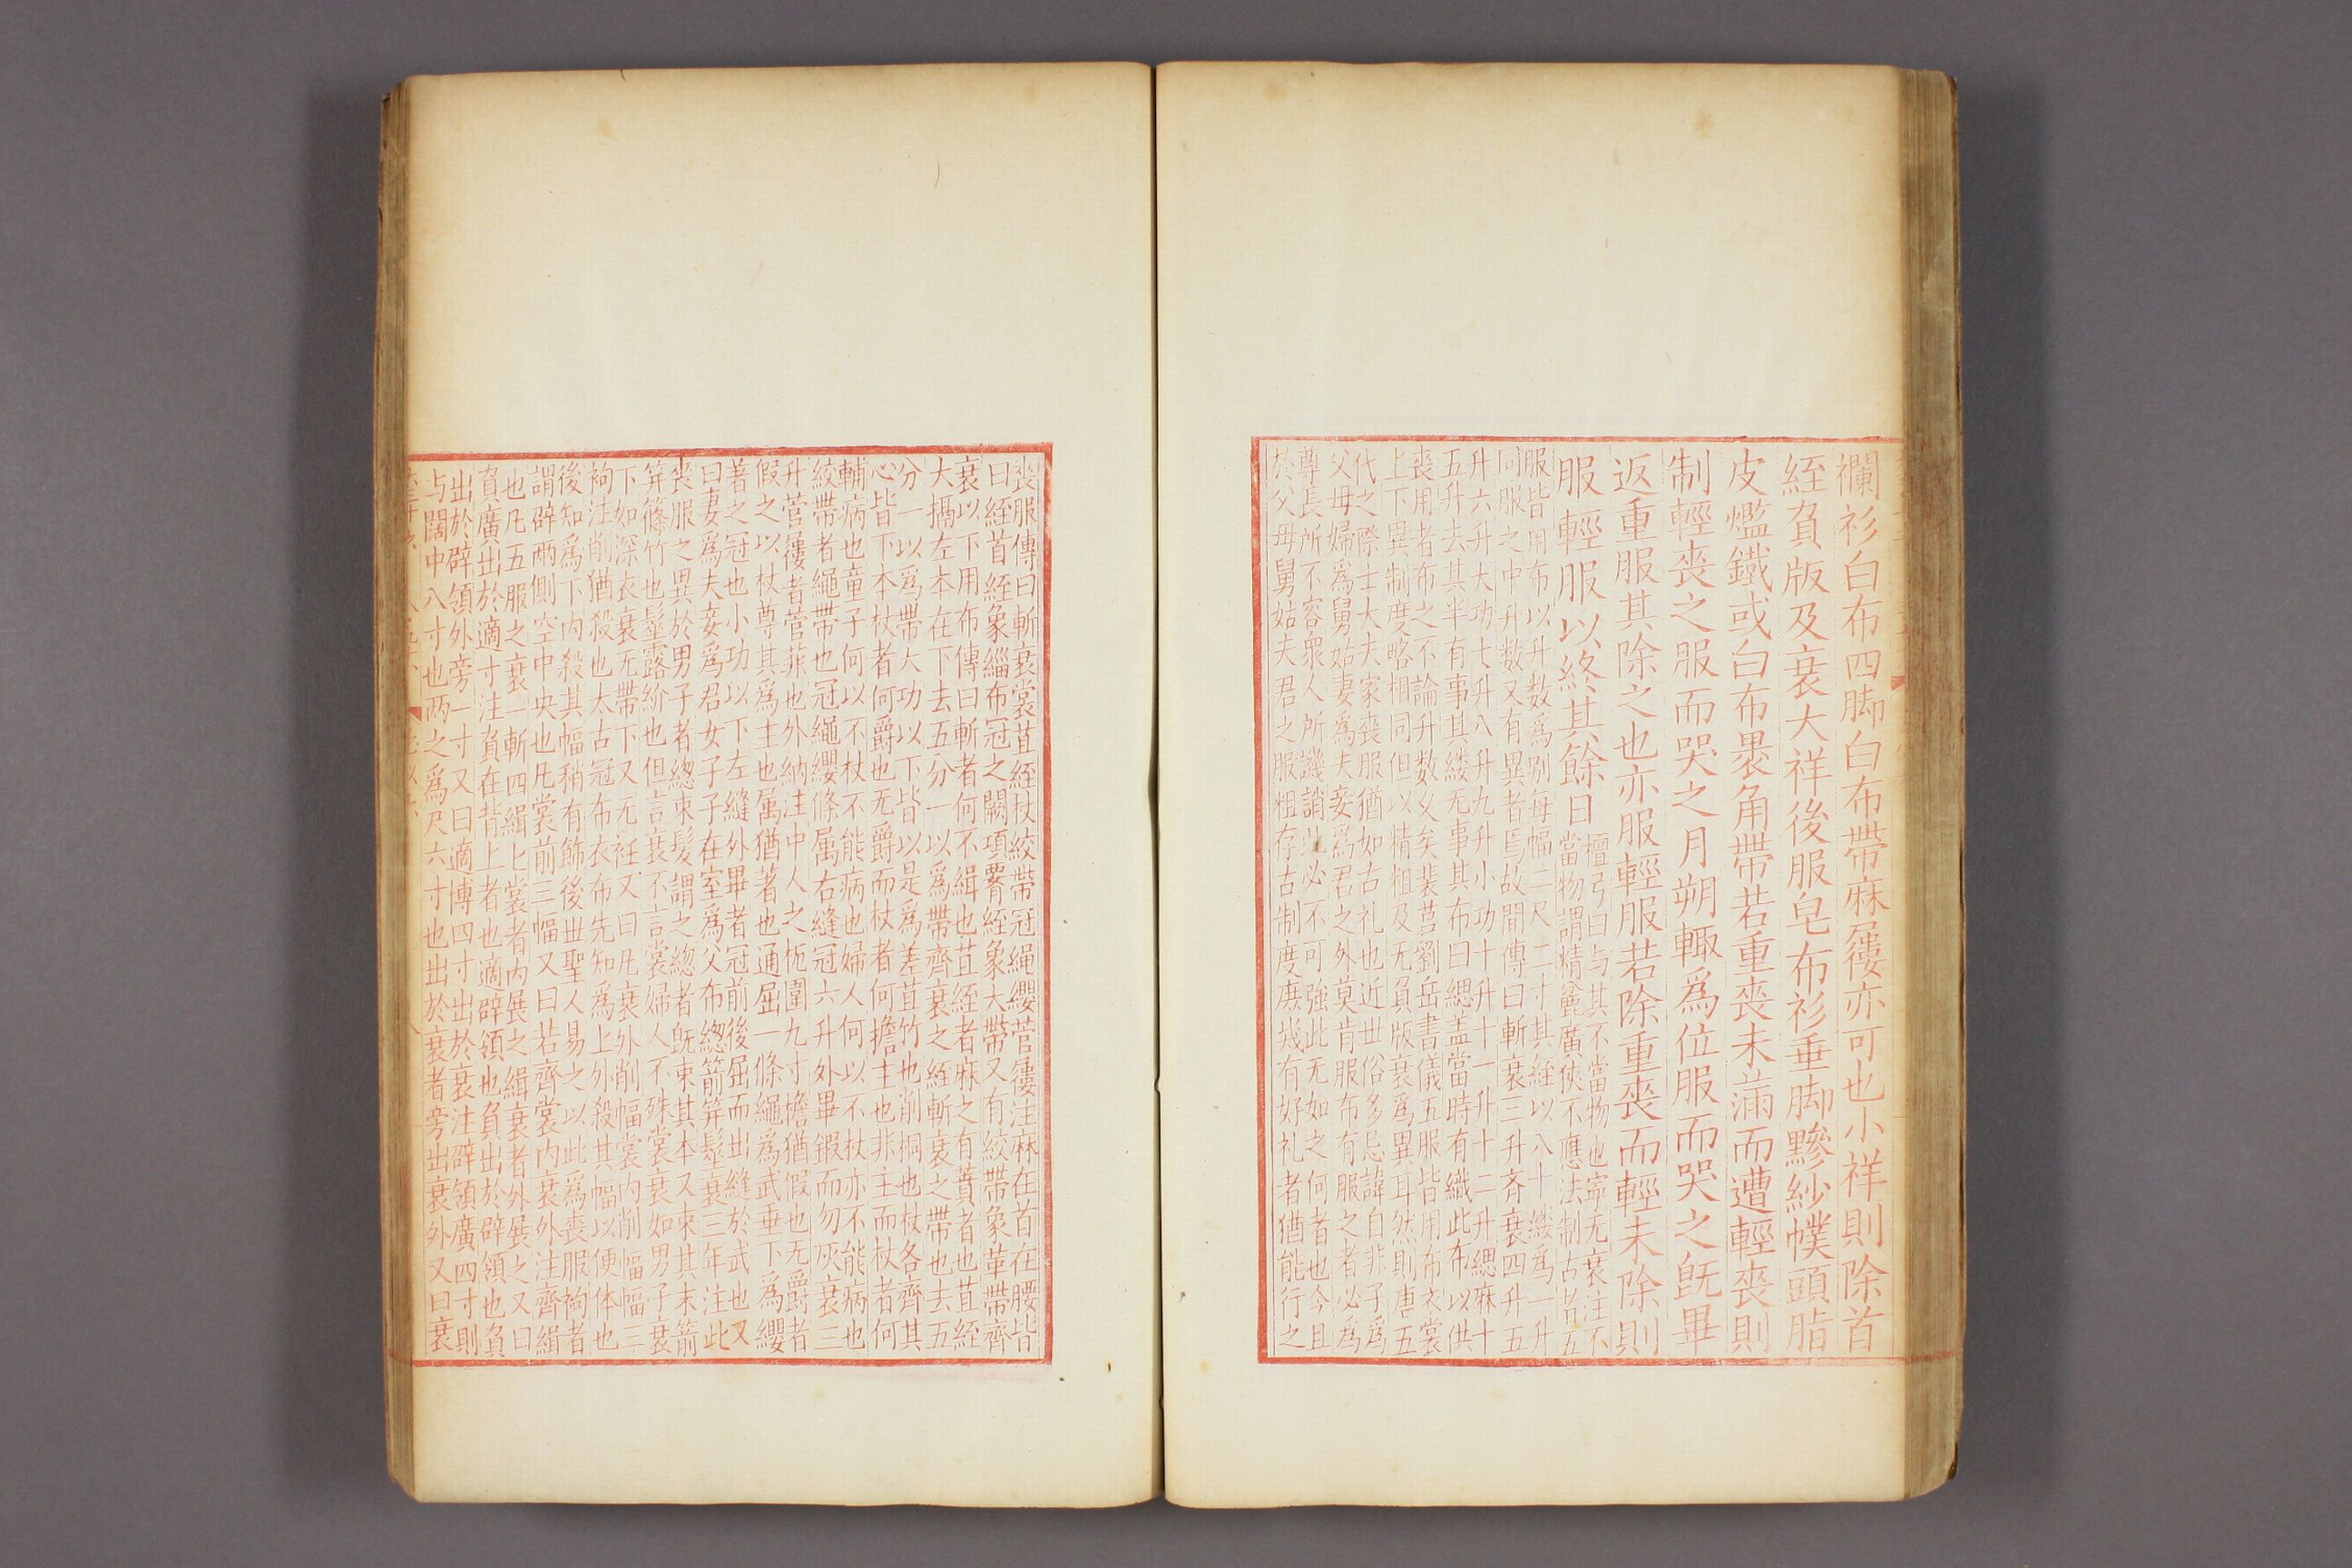 襴衫白布四脚白布帶麻屨亦可也小祥則除首
絰負版及衰大祥後服皂布衫垂脚黲紗幞頭脂
皮爁鐵或白布褁角帶若重喪未滿而遭輕喪則
制輕喪之服而哭之月朔輙爲位服而哭之旣畢
返重服其除之也亦服輕服若除重喪而輕未除則
服輕服以終其餘日
檀弓曰与其不當物也寜无衰注不
當物謂精麄廣俠不應法制古者五
服皆用布以升数爲别每幅二尺二寸其經以八十縷爲一升
同服之中升数又有異者焉故間傳曰斬衰三升齊衰四升五
升六升大功七升八升九升小功十升十一升十二升緦麻十
五升去其半有事其縷无事其布曰緦盖當時有織此布以供
喪用者布之不論升数义矣裴莒劉岳書儀五服皆用布衣裳
上下異制度略相同但以精粗及无負版衰爲異耳然則唐五
代之際士大夫家喪服猶如古礼也近世俗多忌諱自非子爲
父母婦爲舅姑妻爲夫妾爲君之外莫肯服布有服之者必爲
尊長所不容衆人所譏誚此必不可強此无如之何者也今且
於父母舅姑夫君之服粗存古制度庶㡬有好礼者猶能行之
喪服傳曰斬衰裳苴絰杖絞帶冠繩纓菅屨注麻在首在腰皆
曰絰首絰象緇布冠之闕項䙅絰象大帶又有絞帶象革帶齊
衰以下用布傳曰斬者何不緝也苴絰者麻之有蕡者也苴絰
大搹左本在下去五分一以爲帶齊衰之絰斬衰之帶也去五
分一以爲帶大功以下皆以是爲差苴竹也削桐也杖各齊其
心皆下本杖者何爵也无爵而杖者何擔主也非主而杖者何
輔病也童子何以不杖不能病也婦人何以不杖亦不能病也
絞帶者繩帶也冠繩纓條属右縫冠六升外畢鍜而勿灰衰三
升菅屨者菅菲也外納注中人之扼圍九寸檐猶假也无爵者
假之以杖尊其爲主也属猶著也通屈一條繩爲武垂下爲纓
著之冠也小功以下左縫外畢者冠前後屈而出縫於武也又
曰妻爲夫妾爲君女子子在室爲父布緫箭笄髽衰三年注此
喪服之異於男子者緫束髮謂之緫者旣束其本又束其末箭
笄篠竹也髽露紒也但言衰不言裳婦人不殊裳衰如男子衰
下如深衣衰无帶下又无衽又曰凡衰外削幅裳内削幅幅三
袧注削猶殺也太古冠布衣布先知爲上外殺其幅以便体也
後知爲下内殺其幅稍有飾後世聖人易之以此爲喪服袧者
謂辟两側空中央也凡裳前三幅又曰若齊裳内衰外注齊緝
也凡五服之衰一斬四緝匕裳者内展之緝衰者外展之又曰
負廣出於適寸注負在背上者也適辟領也負出於辟領也負
出於辟領外旁一寸又曰適博四寸出於衰注辟領廣四寸則
与闊中八寸也两之爲尺六寸也出於衰者旁出衰外又曰衰